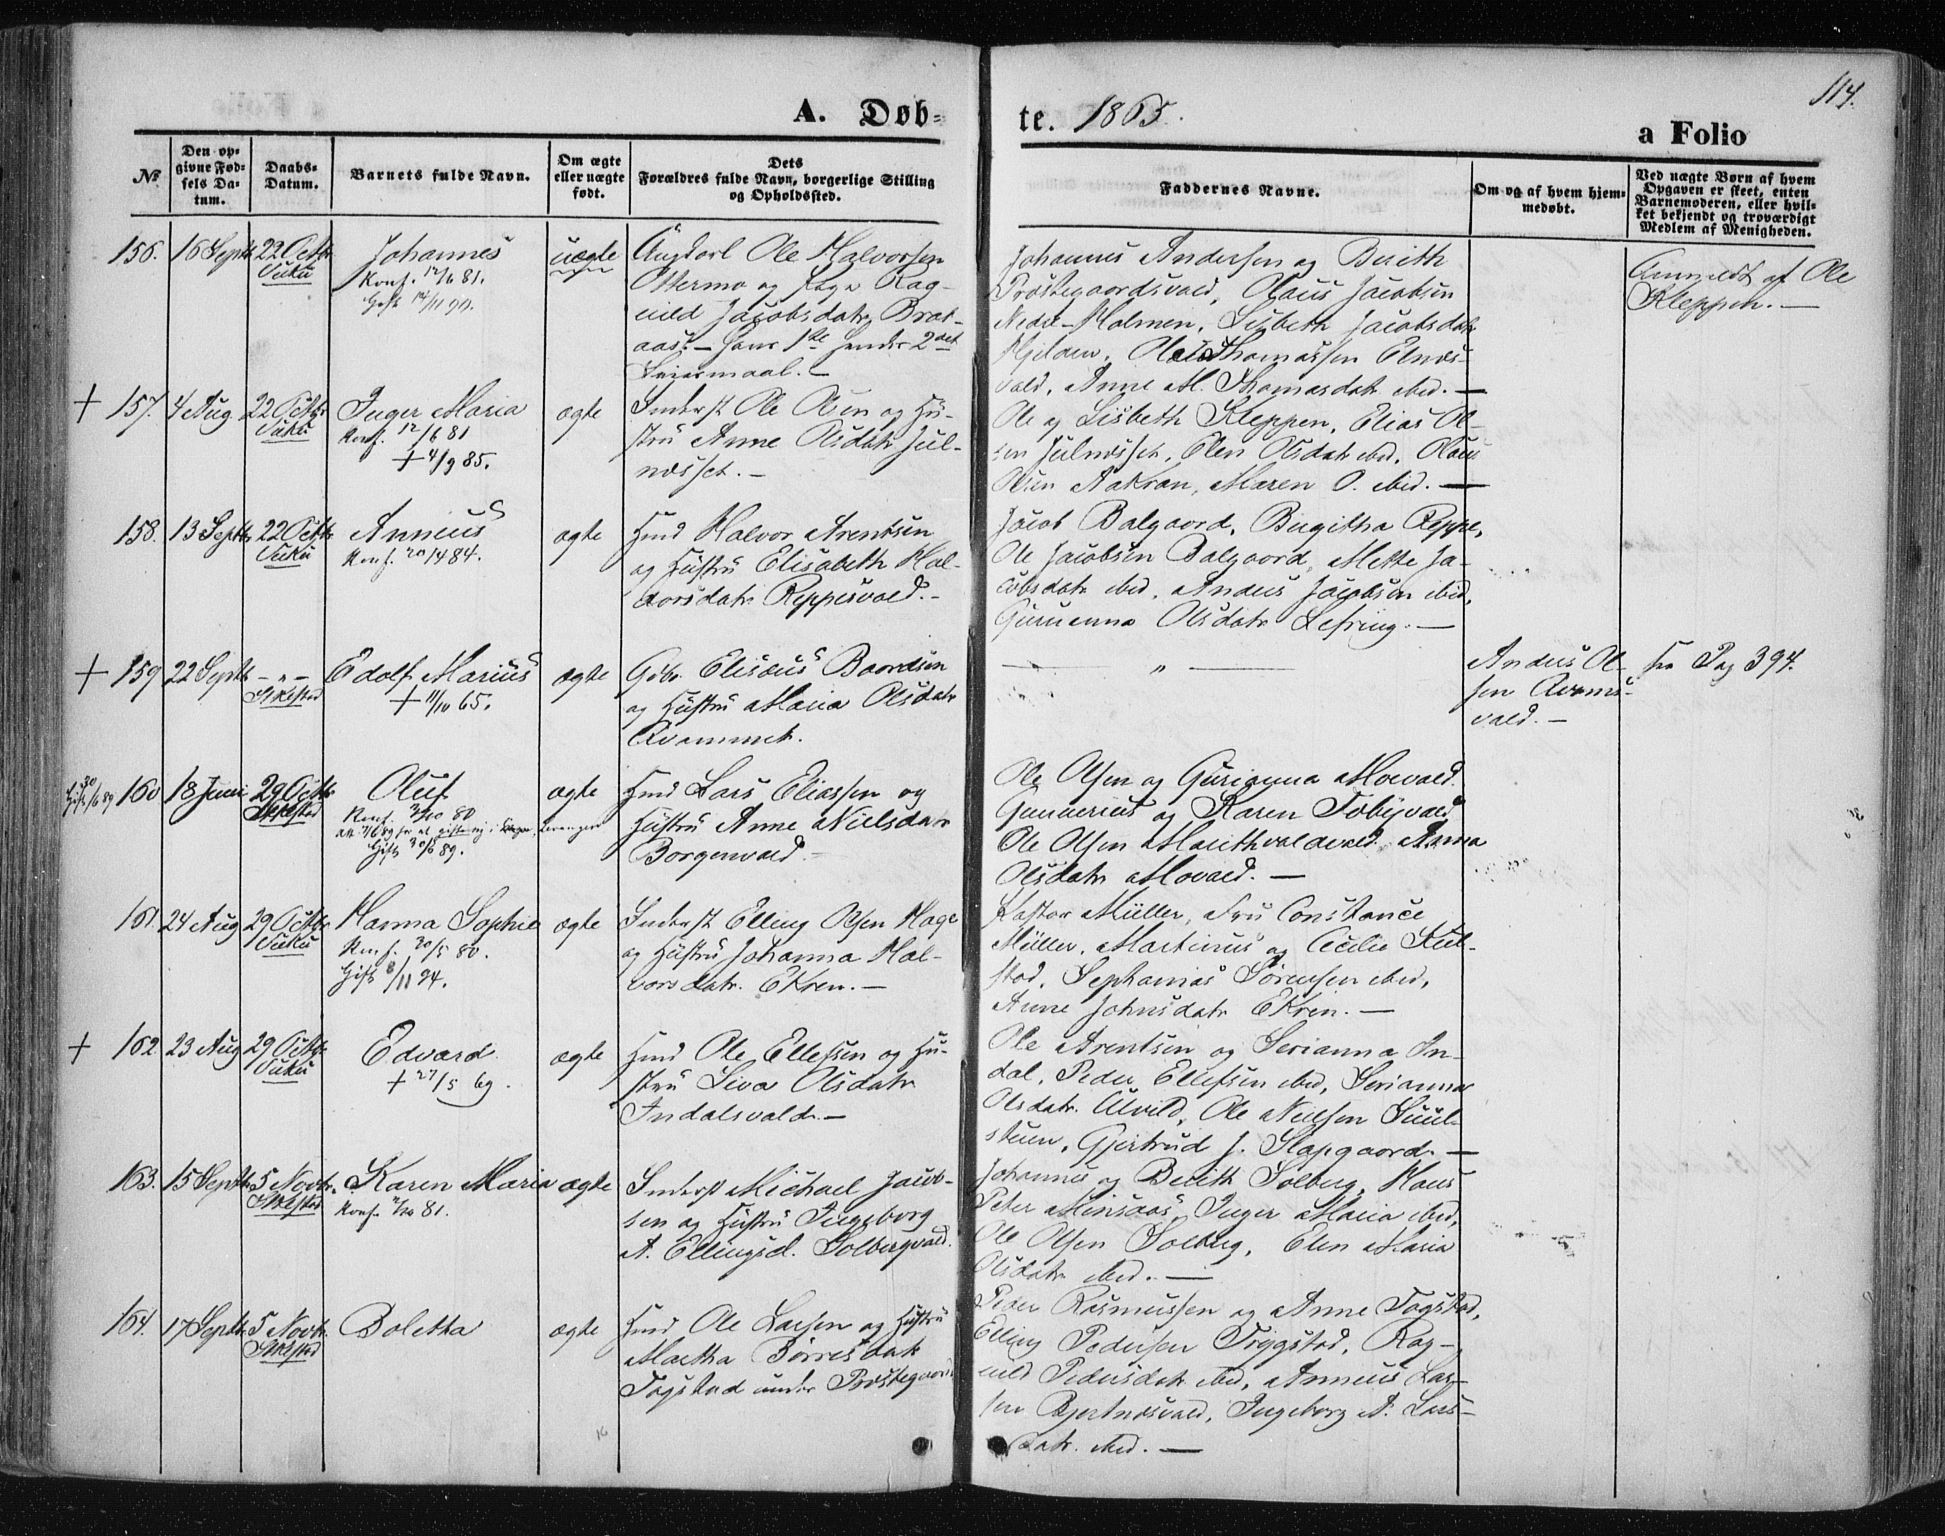 A. Døb=
te. 1865.
114.
a Folio
№
Den op=
givne Fød=
sels Da=
tum.
Daabs=
Datum.
Barnets fulde Navn.
Om ægte
eller uægte
født.
Dets
Forældres fulde Navn, borgerlige Stilling
og Opholdssted.
Faddernes Navne.
Om og af hvem hjem=
medøbt.
Ved uægte Børn af hvem
Opgaven er skeet, enten
Barnemoderen, eller hvil=
ket bekjendt og troværdigt
Medlem af Menigheden.
156. 16 Septb 22 Octbr Johannes uægte Ungkarl Ole Halvorsen
Konf. 12/6 81.
Gift
Ottermo og Pige Rag-
nild Jacobsdatr Brat-
aas. - Hans 1ste hendes 2det
Leiermaal. -
Johannes Andersen og Berith
Præstegaardsvald, Olaus Jacobsen
Nedre-Holmen, Lisbeth Jacobsdatr
Hjelden, Ole Thomassen Elnæs-
vald, Anne M. Thomasdatr ibid. -
Anmeldt af Ole
Kleppen. -
+ 157. 4 Aug. 22 Octbr Inger Maria ægte Inderst Ole Olsen og Hu-
Konf. 12/6 81
+ 4/9 85.
stru Anne Olsdatr Jul-
næsset. -
Ole og Lisbeth Kleppen, Elias Ol-
sen Julnæsset, Elen Olsdatr ibid, Olaus
Olsen Aakran, Maren O. ibid. -
158. 13 Septb 22 Octbr Annæus ægte Hmd Halvor Arentsen
Konf. 20/4 84.
og Hustru Elisabeth Hal-
dorsdatr Reppesvald. -
Jacob Balgaard, Birgitha Reppe,
Ole Jacobsen Balgaard, Mette Ja-
cobsdatr ibid, Anders Jacobsen ibid,
Gurianna Olsdatr Lefring. -
+ 159 22 Septb - " - Edolf Marius ægte Gbr. Elisæus Baardsen
+ 11/10 65.
og Hustru Maria Olsdatr
Kvammet.
- " -
Anders Ol-
sen Kvams-
vald. -
see Pag 394.
Gift 30/6 89 160 18 Juni 29 Octbr Oluf ægte Hmd Lars Eliassen og
Gift 30/6 89.
Hustru Anne Nielsdatr
Borgenvald -
Ole Olsen og Gurianna Movald
Gunnerius og Karen Tobyvald
Ole Olsen Marithvaldvald, Anna
Olsdatr Movald. -
161. 24 Aug 29 Octbr Hanna Sophie ægte Inderst Elling Olsen Hage
Konf. 30/5 80.
Gift 8/11 94.
og Hustru Johanna Hal-
vorsdatr. Ekren. -
Pastor Müller, Fru Constance
Müller, Martinus og Cecilie Kul-
stad, Sephanias Sørensen ibid,
Anne Johnsdatr Ekrin. -
+ 162. 23 Aug 29 Octbr Edvard ægte Hmd Ole Ellefsen og Hu-
+ 27/5 69.
stru Siva Olsdatr
Indalsvald. -
Ole Arentsen og Serianna In-
dal, Peder Ellefsen ibid, Serianna
Olsdatr. Ulvild, Ole Nielsen Suul-
stuen, Gjertrud J. Slapgaard. -
163. 15 Septb 5 Novbr. Karen Maria ægte Inderst Michael Jacob-
sen og Hustru Ingeborg
A. Ellingsd. Solbergvald.
Johannes og Berith Solberg, Hans
Peter Minsaas, Inger Maria ibid,
Ole Olsen Solberg, Elen Maria
Olsdatr ibid. -
164. 17 Septb 5 Novbr Boletha ægte Hmd Ole Larsen og Hustru
Martha Børresdatr
Togstad under Præstegaard
Peder Rasmussen og Anne Togstad,
Elling Pedersen Tryggstad, Rag-
nild Pedersdatr ibid, Annæus Lar-
sen Bjertnæsvald, Ingeborg A. Lars-
datr. ibid. -